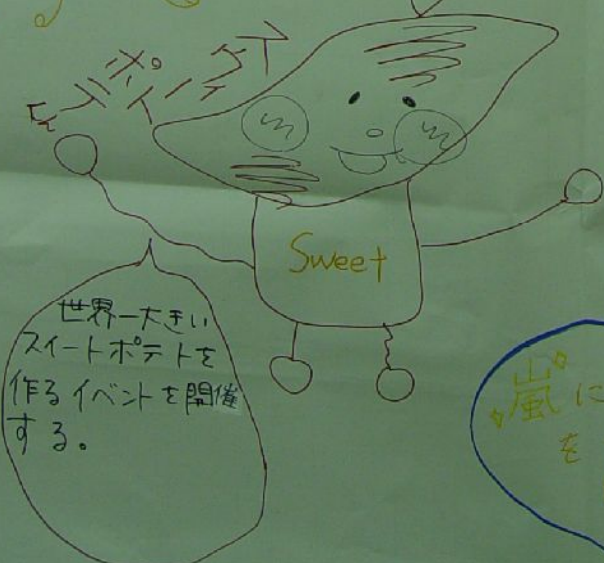 Sweet
世界一大きい
スイートポテトを
作るイベントを開催
する。
嵐に
を